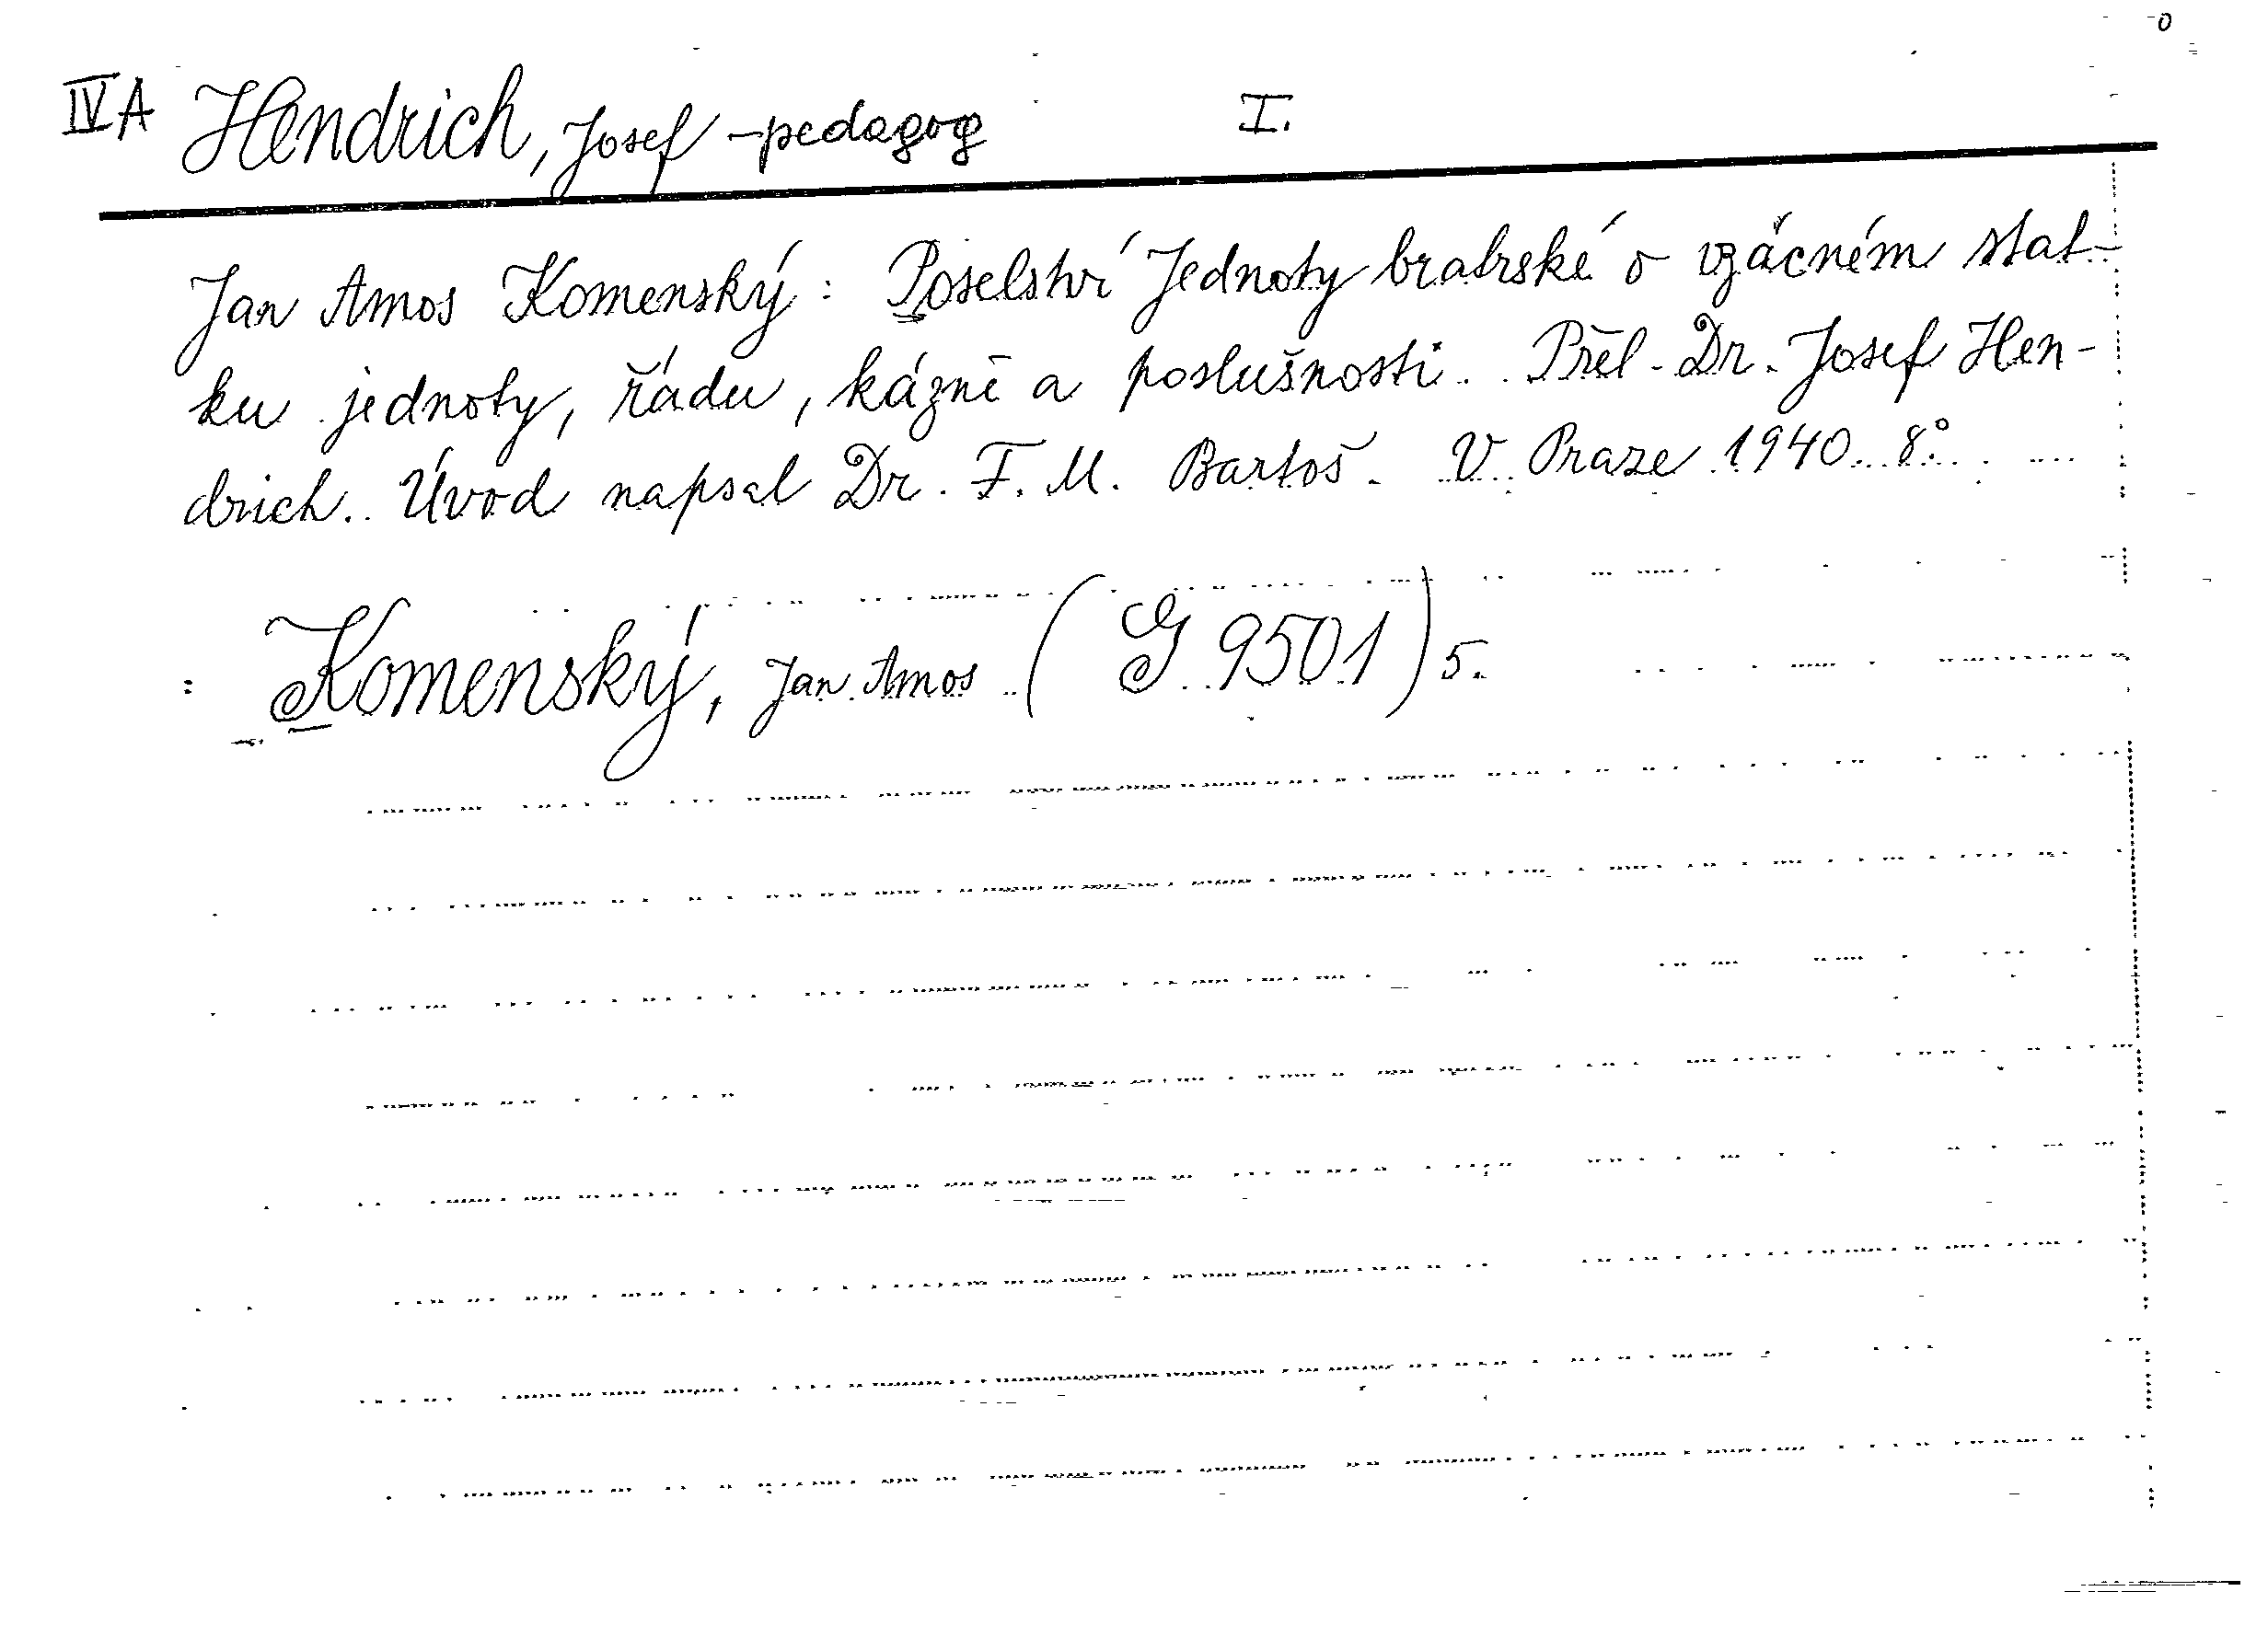 IV A Hendrich, Josef - pedagog I.
Jan Amos Komenský: Poselství Jednoty bratrské o vzácném stat-
ku jednoty, řádu, kázně a poslušnosti. Přel. Dr. Josef Hen-
drich. Úvod napsal Dr. F. M. Bartoš. V Praze 1940. 8°.
: Komenský, Jan Amos (G 9501) 5.